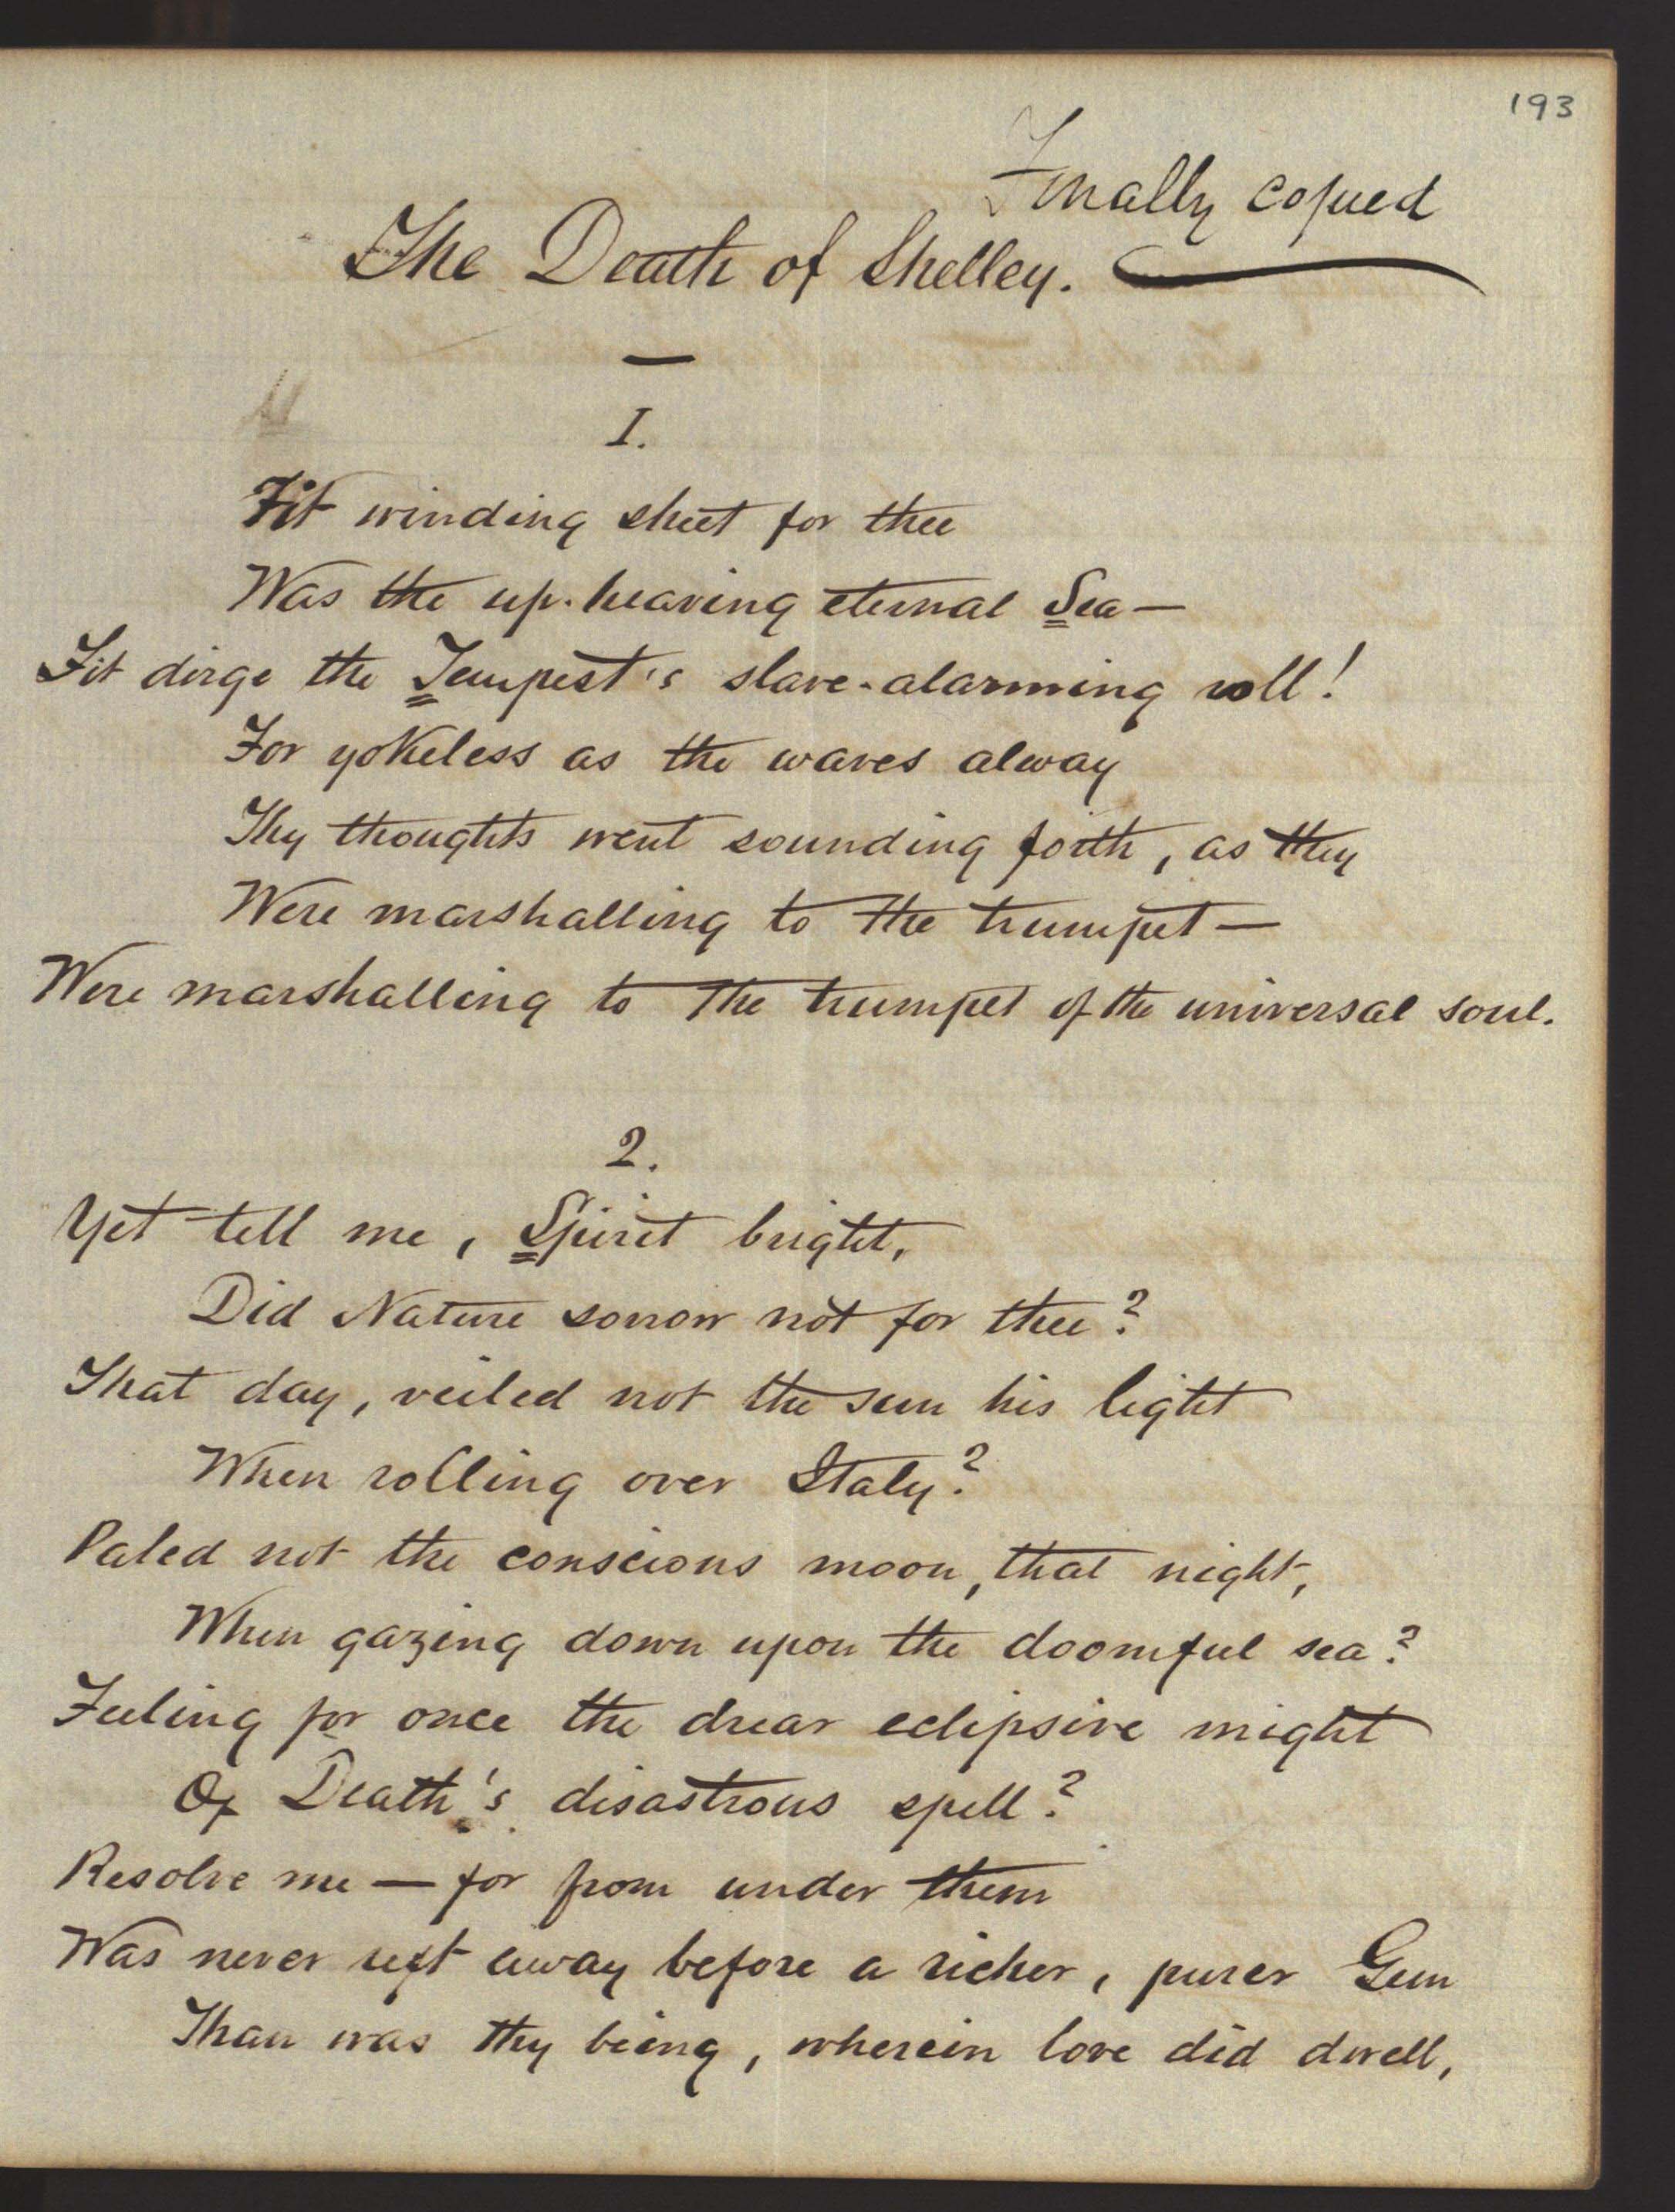 193
Finally copied
The Death of Shelley.
I.
Fit winding sheet for thee
Was the up-heaving eternal Sea —
Fit dirge the Tempest's slave-alarming roll!
For yokeless as the waves alway
Thy thoughts went sounding forth, as they
Were marshalling to the trumpet —
Were marshalling to the trumpet of the universal soul.
2.
Yet tell me, Spirit bright,
Did Nature sorrow not for thee?
That day, veiled not the sun his light
When rolling over Italy?
Paled not the conscious moon, that night,
When gazing down upon the doomful sea?
Feeling for once the drear eclipsive might
Of Death's disastrous spell?
Resolve me — for from under them
Was never reft away before a richer, purer Gem
Than was thy being, wherein love did dwell,